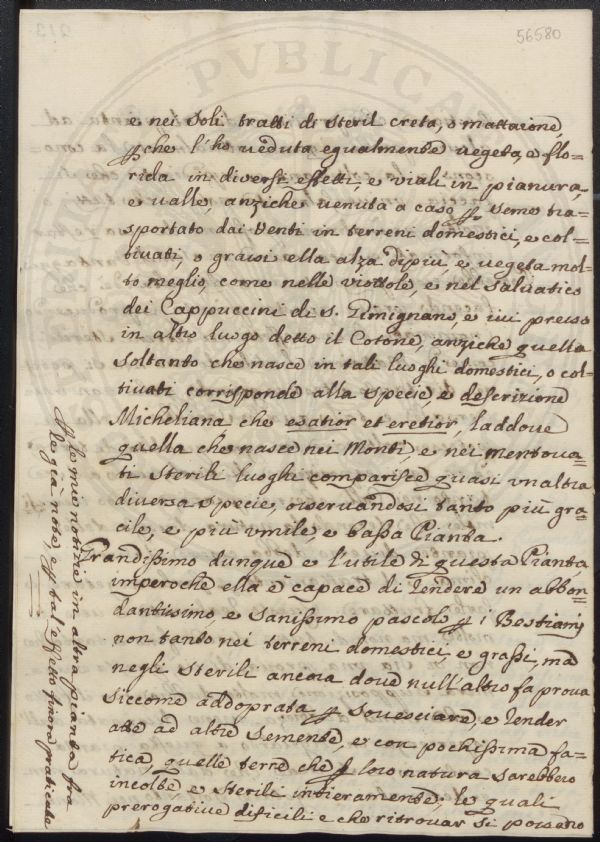 56580
PVBLICA
e nei soli tratti di steril creta, o mattaione,
che l'ho veduta egualmente vegeta, e flo=
rida in diversi effetti, e viali in pianura,
e valle, anziche venuta a caso p seme tra=
sportato dai Venti in terreni domestici, e col=
tivati, o grassi ella alza dipiu, e vegeta mol=
to meglio, come nelle viottole, e nel salvatico
dei Cappuccini di S. Gimignano, e ivi presso
in altro luogo detto il Cotone, anziche quella
soltanto che nasce in tali luoghi domestici, o col=
tivati corrisponde alla specie, e descrizione
Micheliana che elatior et erectior, laddove
quella che nasce nei Monti, e nei mentova=
ti sterili luoghi comparisce quasi un altra
diversa specie, osservandosi tanto più gra=
cile, e più umile, e bassa Pianta.
Grandissimo dunque e l'utile di questa Pianta,
imperoche ella è capace di render un abbon=
dantissimo, e sanissimo pascolo p i Bestiami
non tanto nei terreni domestici, e grassi, mà
negli sterili ancora dove null'altro fa prova
siccome addoprata p sovesciare, e render
atte ad altre semente, e con pochissima fa=
tica, quelle terre che p loro natura sarebbero
incolte, e sterili intieramente; le quali
prerogative dificili e che ritrovar si possano
le mie notizie in altra pianta fra
le già note, p tal'effetto finora praticate